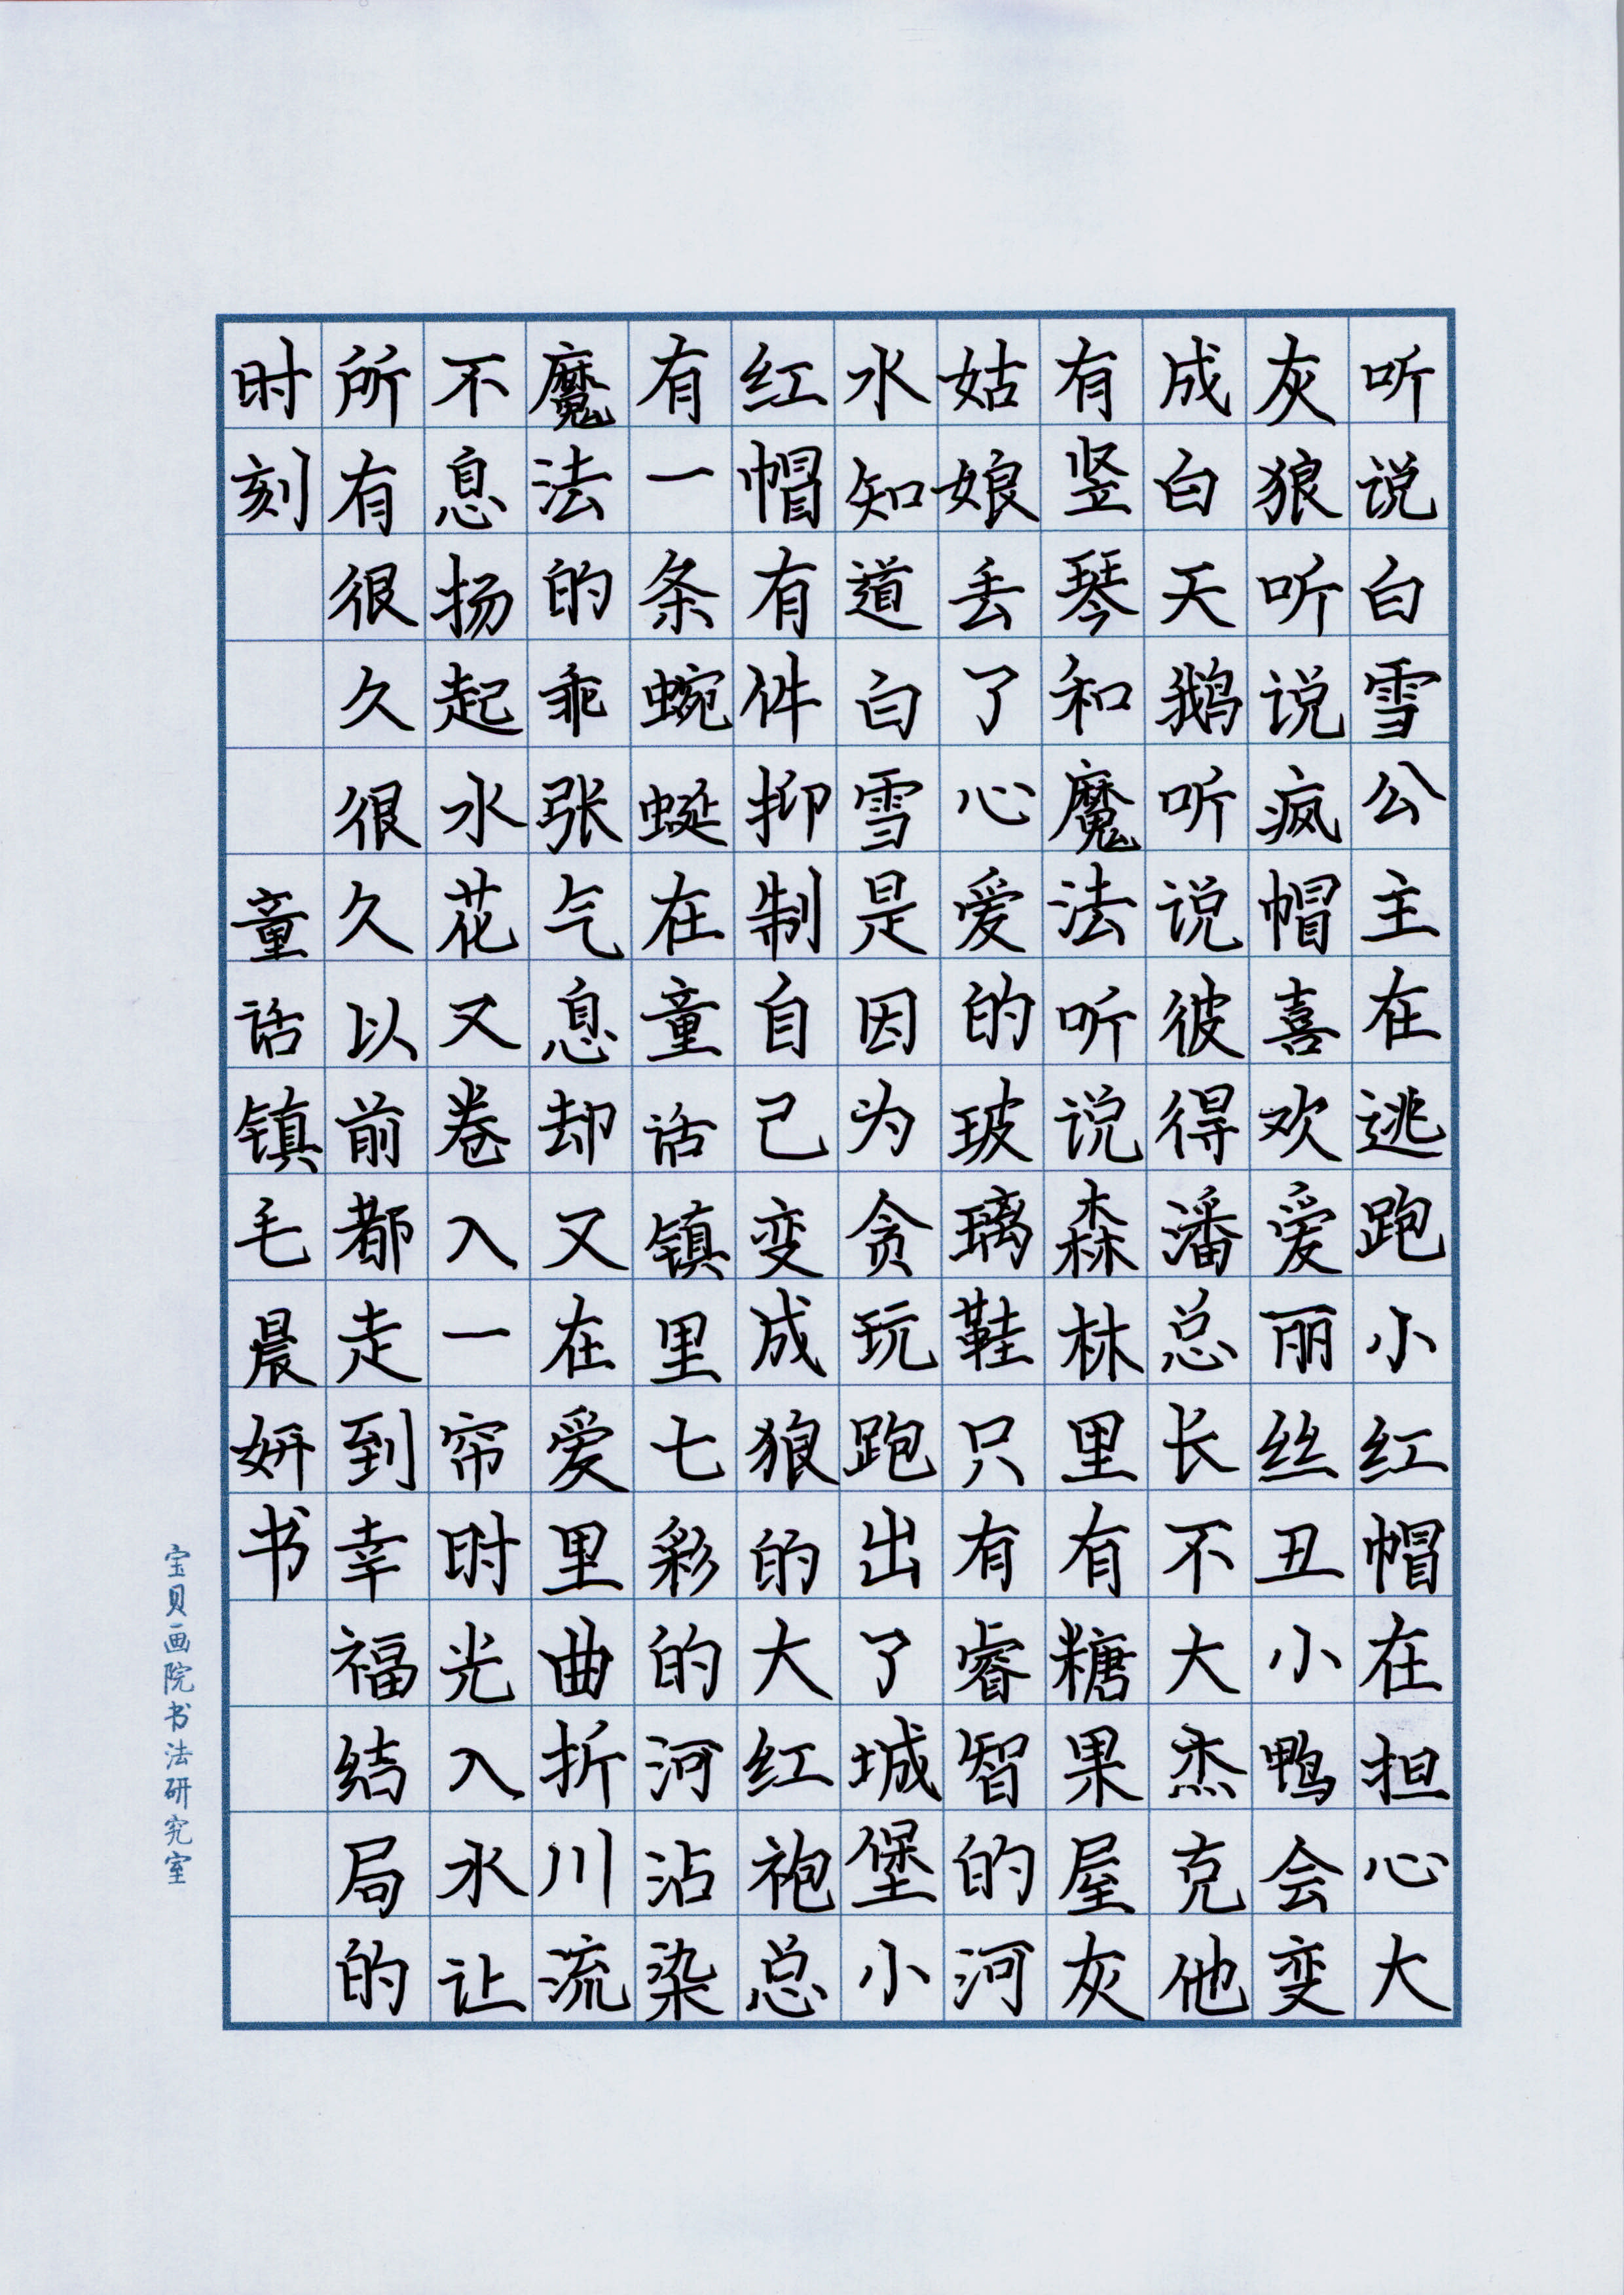 听说白雪公主在逃跑小红帽在担心大
灰狼听说疯帽喜欢爱丽丝丑小鸭会变
成白天鹅听说彼得潘总长不大杰克他
有竖琴和魔法听说森林里有糖果屋灰
姑娘丢了心爱的玻璃鞋只有睿智的河
水知道白雪是因为贪玩跑出了城堡小
红帽有件抑制自己变成狼的大红袍总
有一条蜿蜒在童话镇里七彩的河沾染
魔法的乖张气息却又在爱里曲折川流
不息扬起水花又卷入一帘时光入水让
所有很久很久以前都走到幸福结局的
时刻
童话镇毛晨妍书
宝贝画院书法研究室